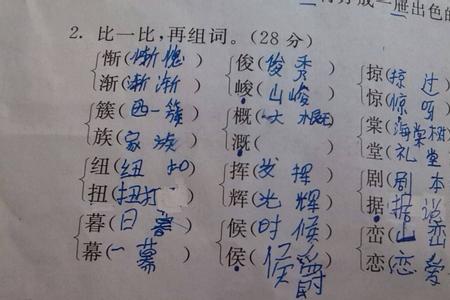 出色的
2. 比一比,再组词。(28分)
惭(惭愧) 俊(俊秀) 掠(掠过
渐(渐渐) 峻(山峻) 惊(惊呀
簇(西一簇) 概(大概) 棠(海棠树
族(家族) 溉( ) 堂(礼堂
纽(纽扣) 挥(发挥) 剧(剧本
扭(扭打) 辉(光辉) 据(据说
暮(日暮) 候(时候) 峦(山峦
幕(一幕) 侯(侯爵 恋(恋爱